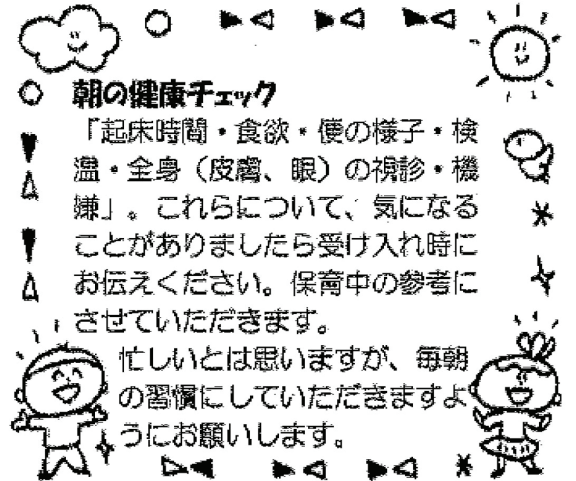 朝の健康チェック
「起床時間・食欲・便の様子・検
温・全身（皮膚、眼）の視診・機
嫌」。これらについて、気になる
ことがありましたら受け入れ時に
お伝えください。保育中の参考に
させていただきます。
忙しいとは思いますが、毎朝
の習慣にしていただきますよ
うにお願いします。